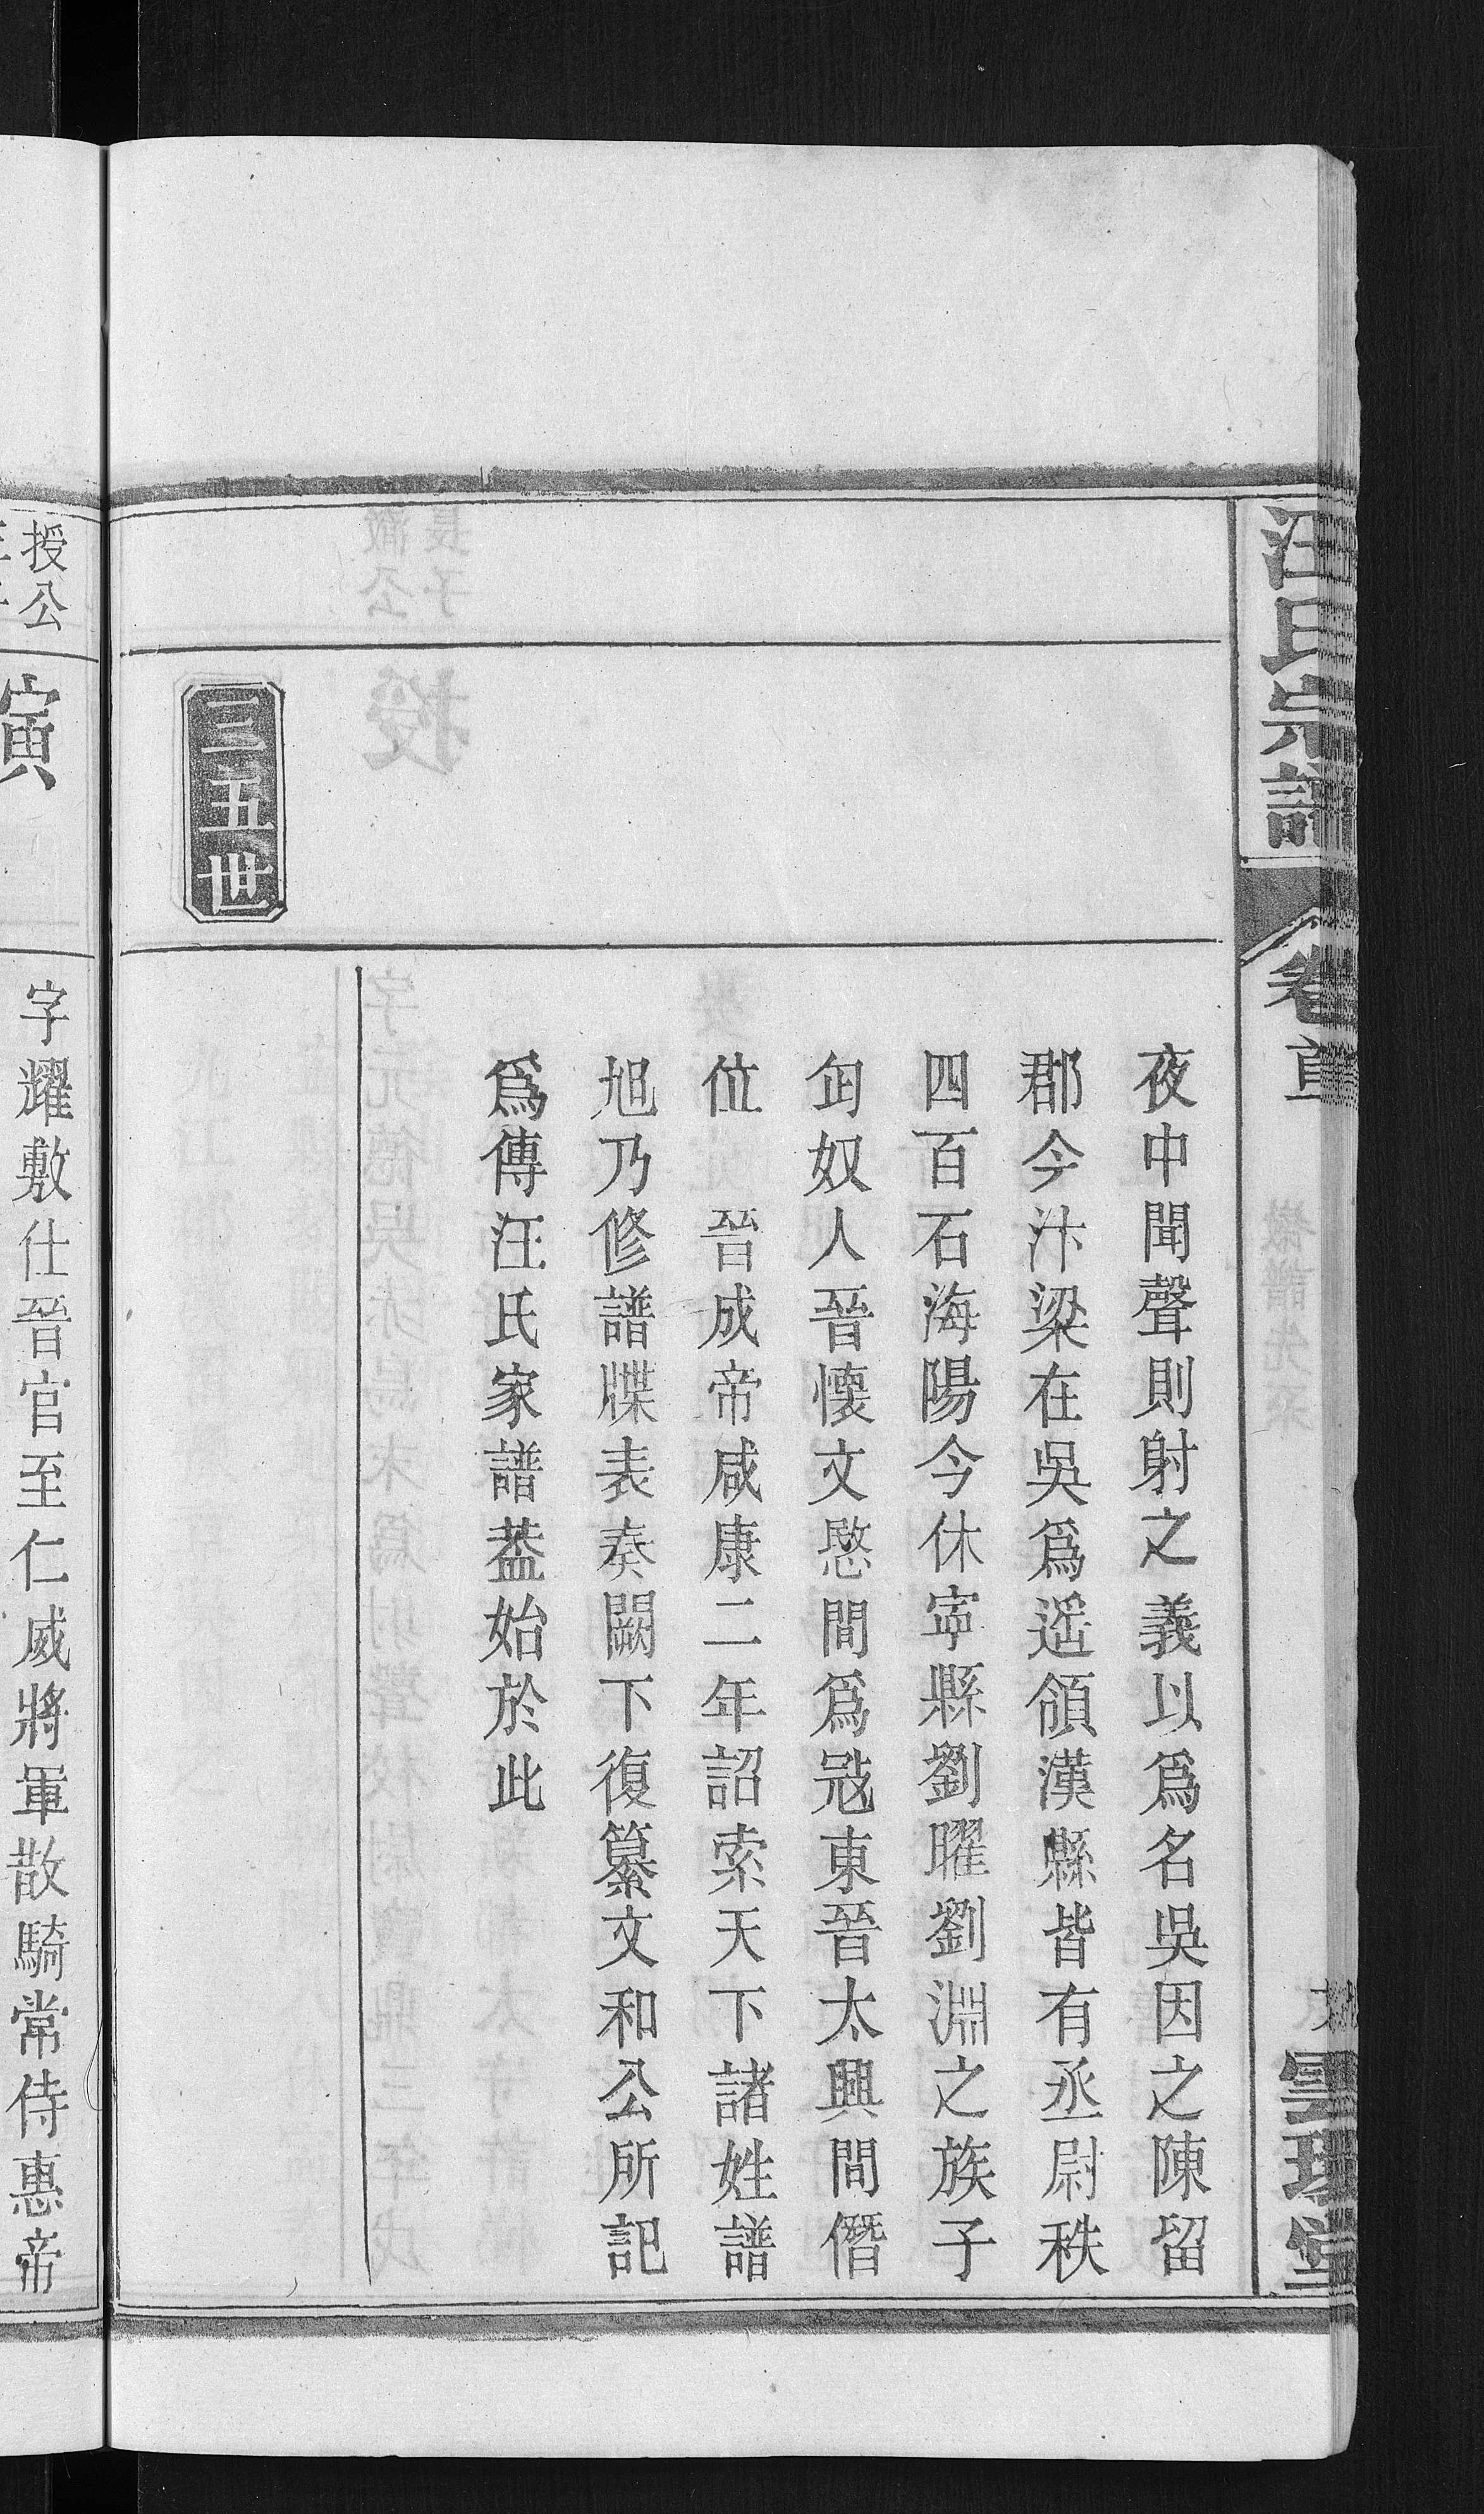 汪氏宗譜
卷首
夜中聞聲則射之義以爲名吳因之陳留
郡今汴梁在吳爲遥領漢縣皆有丞尉秩
四百石海陽今休寧縣劉曜劉淵之族子
匈奴人晉懷文愍間爲冦東晉太興間僭
位　晉成帝咸康二年詔索天下諸姓譜
旭乃修譜牒表奏闕下復纂文和公所記
爲傳汪氏家譜葢始於此
三五世
授公
寅
字耀敷仕晉官至仁威將軍散騎常侍惠帝